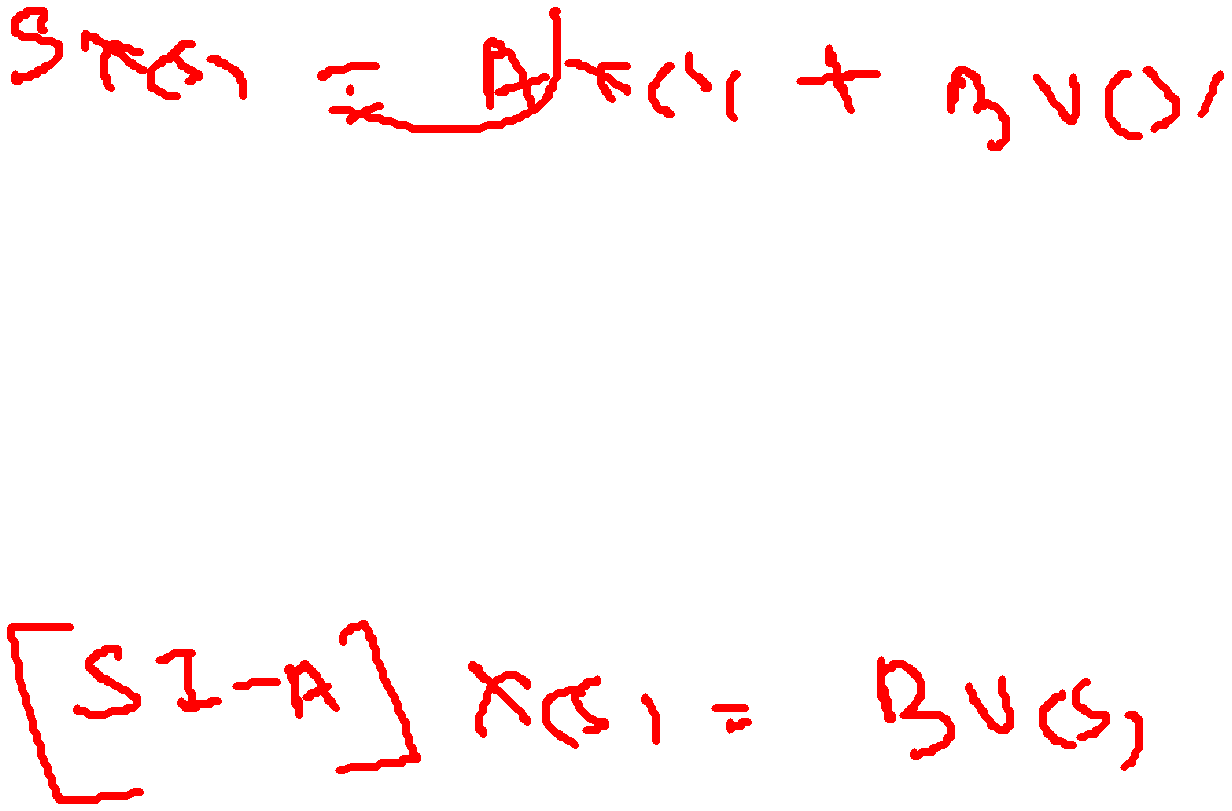 SX(s) = AX(s) + BU(s)
[SI-A] X(s) = BU(s)